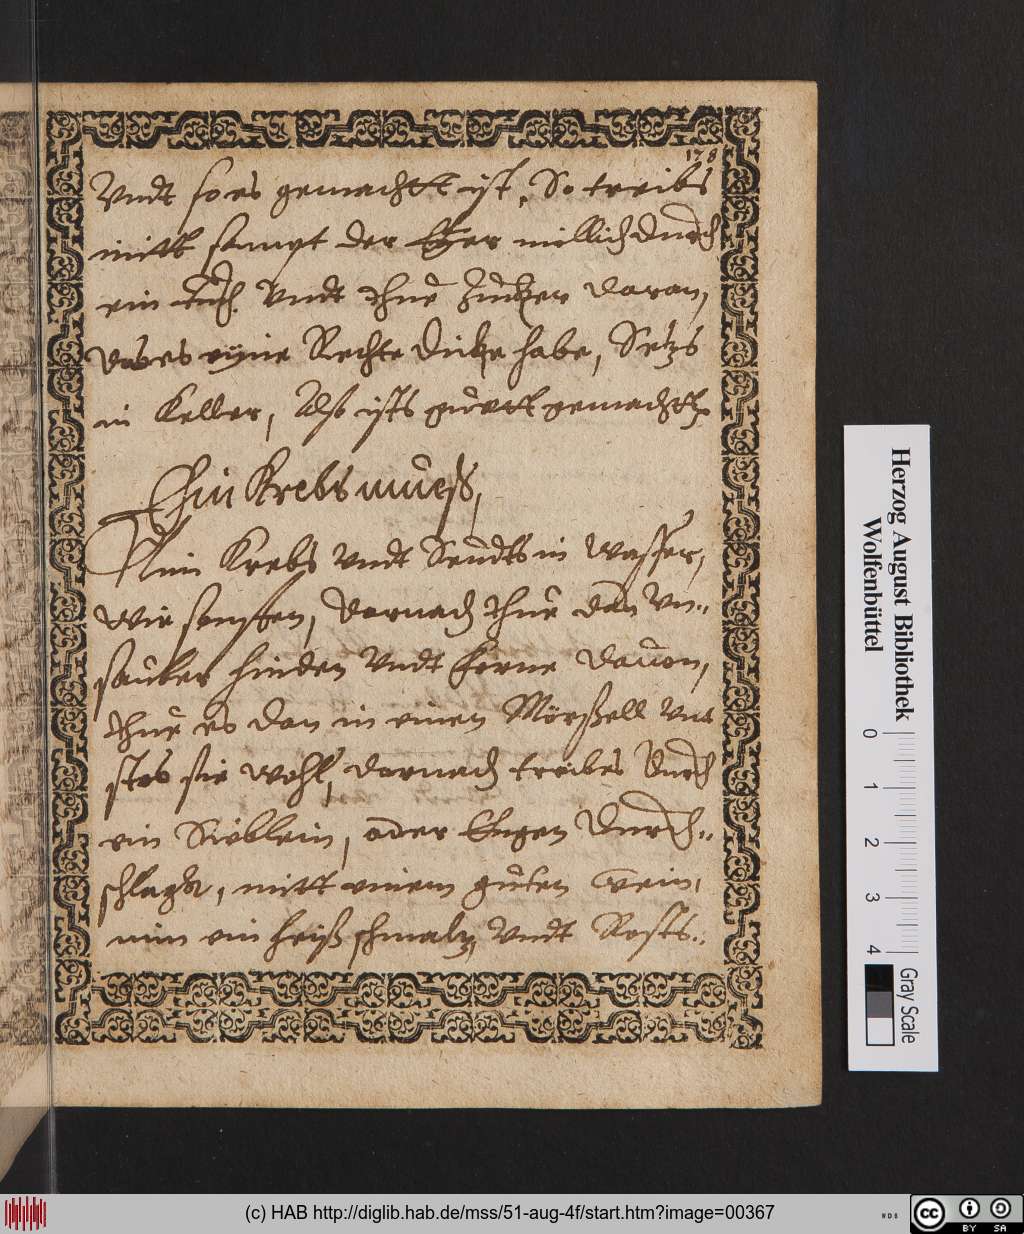 178
Vndt so es gemachtt ist, So treibs
mitt sampt der Eÿer millich durch
ein tuch Vndt thue Zucker daran,
das es eÿne Rechte dicke habe, Setzs
in Keller, Also ists guett gemachtt
Ein Krebs mueß,
Nim Krebs Vndt Seudts in Wasser,
wie sonsten, darnach thue dan Vn-
sauber hinden Vndt forne dauon,
thue es dan in einen Mörßell Vnt
stos sie wohl, darnach treibes durch
ein Sieblein, oder Engen durch-
schlagk, mitt einem guten Wein,
nim ein heiß schmaltz Vndt Rösts
Herzog August Bibliothek
Wolfenbüttel
0 1 2 3 4
Gray Scale
(c) HAB http://diglib.hab.de/mss/51-aug-4f/start.htm?image=00367
WDB
cc BY SA